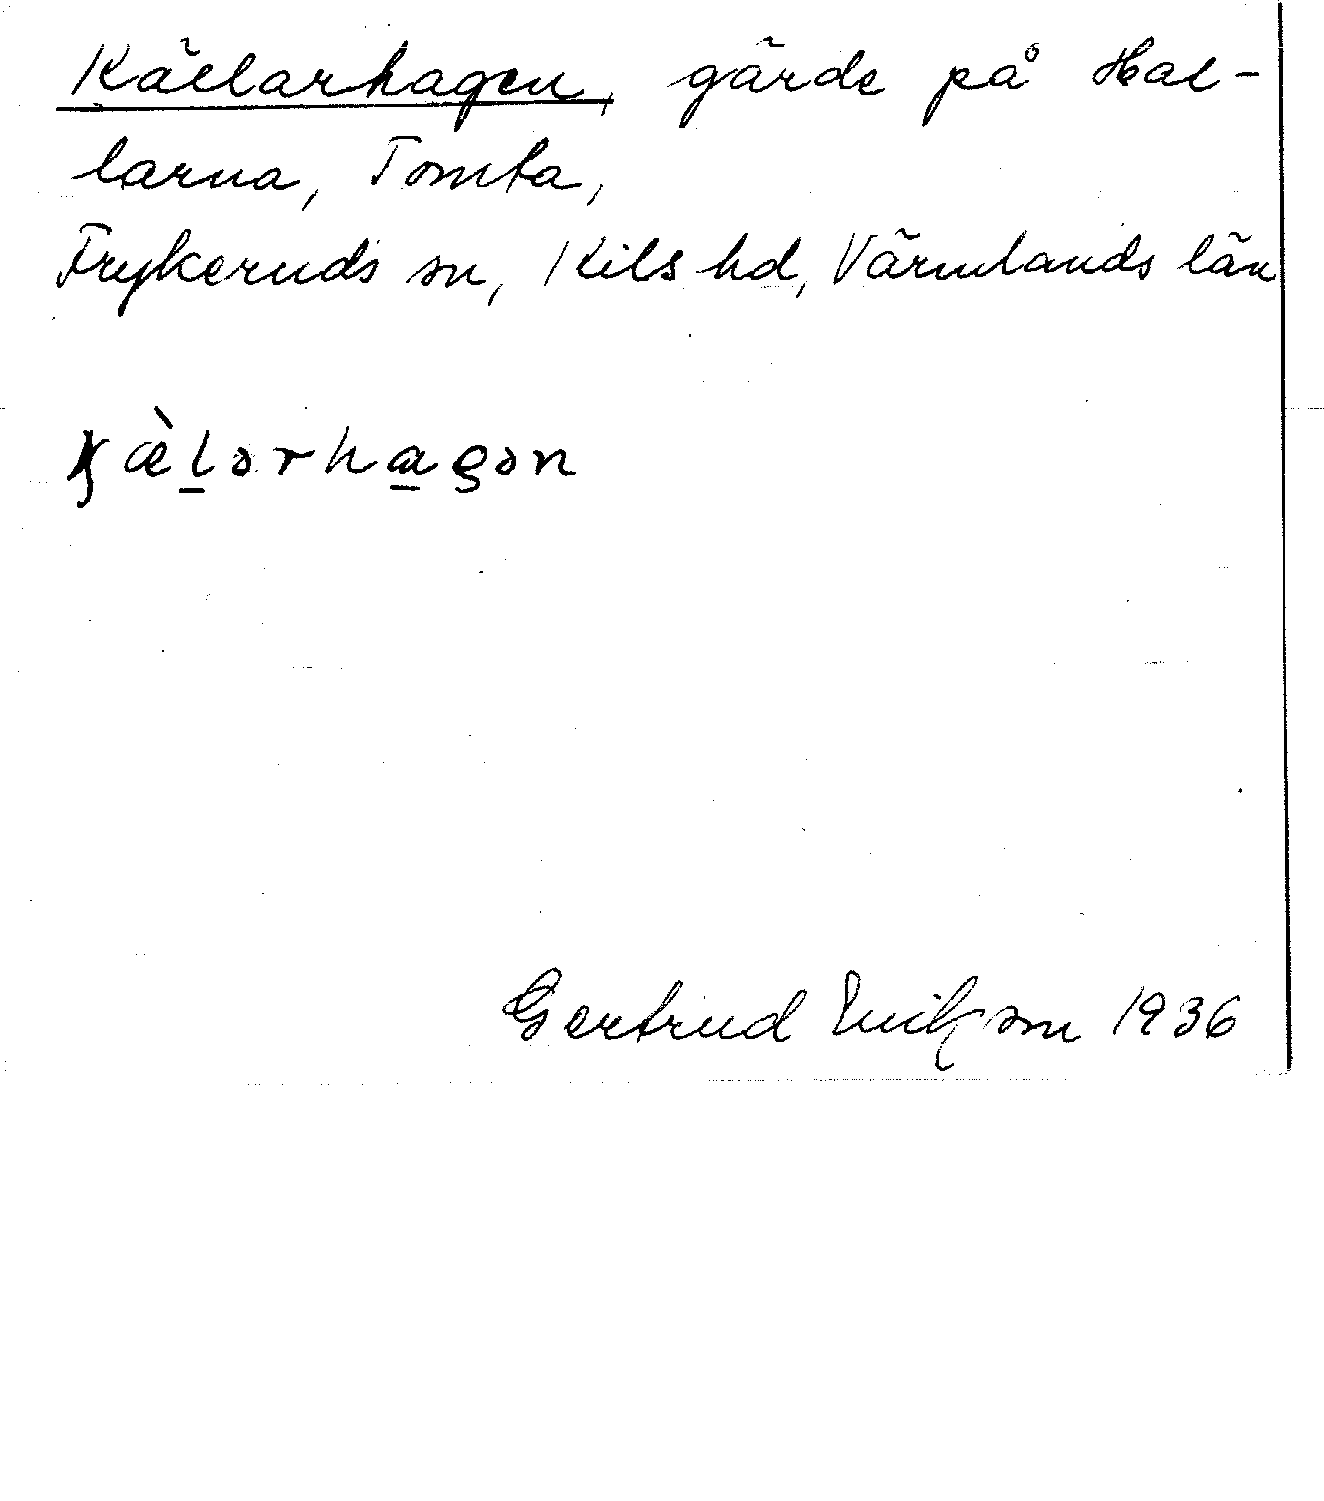 Källarhagen, gärde på Hal-
larna, Tomta,
Frykeruds sn, Kils hd, Värmlands län
ꞣæ̀l̠ərha̱gən
Gertrud 1936